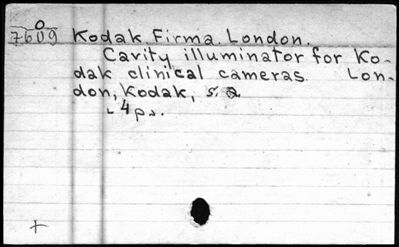 0
7609 Kodak Firma. London.
Cavity illuminator for Ko-
dak clinical cameras. Lon-
don, Kodak, s. a
4 ps.
+